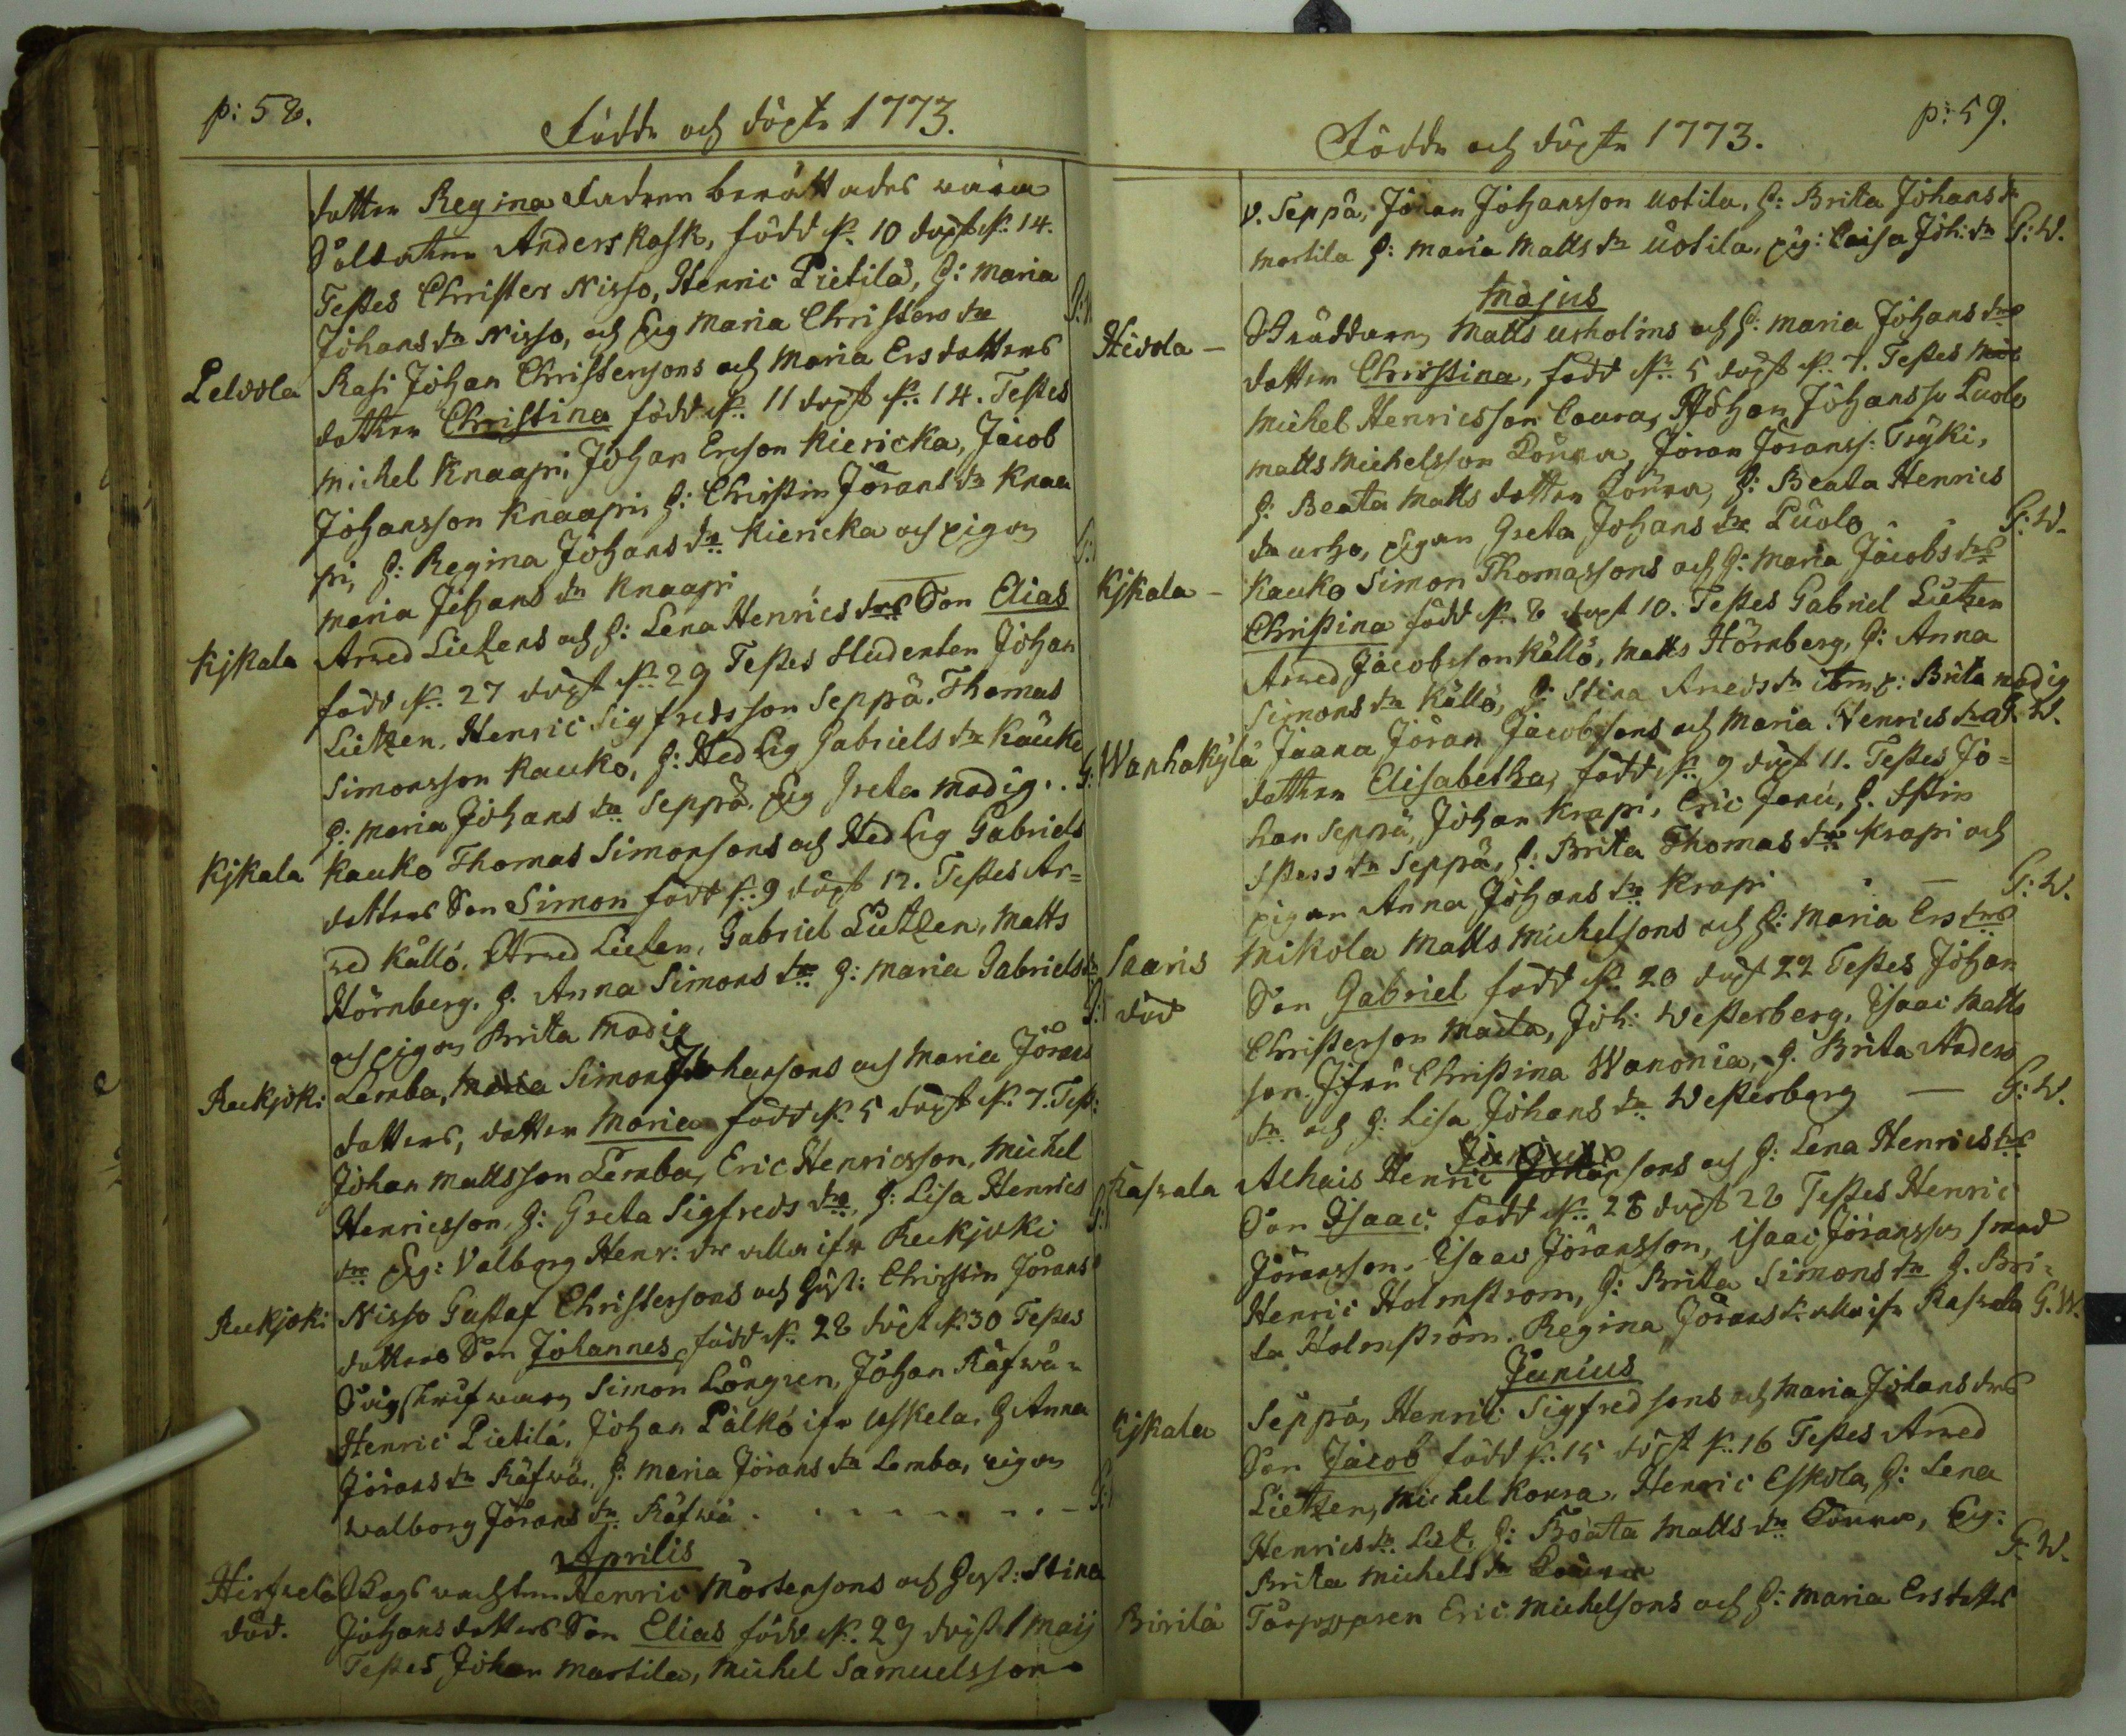 p: 58.
Födde och döpte 1773.
dotter Regina Fadren berättades wara
Soldaten Anders Rask, född d. 10 döpt d. 14.
Testes Christer Nisso, Henric Pietilä, h: Maria
Johans dr Nisso, och Pig Maria Christers dr
Peldola Rasi Johan Christersons och Maria Ersdotters
dotter Christina född d. 11 döpt d. 14. Testes
Michel Knaapi, Johan Erson Kiericka, Jacob
Johansson Knaapi, h: Christin Jörans dr Knaa
pi, h: Regina Johans dr Kiericka och pigan
Maria Johans dr Knaapi
Kjkala Arved Lietzens och h: Lena Henrics drs Son Elias
född d. 27 döpt d. 29 Testes Studenten Johan
Lietzen, Henric Sigfredsson Seppä, Thomas
Simonsson Kauko, h: Hedvig Gabriels dr Kauko
h: Maria Johans dr Seppä. Pig Greta Modig.. G:
Kjkala Kauko Thomas Simonsons och Hedvig Gabriels
dotters Son Simon född d. 9 döpt 12. Testes Ar=
ved Källö, Arved Lietzen, Gabriel Lietzen, Matts
Hörnberg. h. Anna Simons dr h: Maria Gabriels dr
och pigan Brita Modig
Reckjoki Lemba, Simon Johansons och Maria Jörans
dotters, dotter Maria född d. 5 döpt d. 7. Test:
Johan Mattsson Lemba, Eric Henricsson, Michel
Henricsson, h: Greta Sigfreds dr, h: Lisa Henrics
dr Pig: Valborg Henr: dr alla ifr Reckjoki
Reckjoki Nisso Gustaf Christersons och Hust: Christin Jörans
dotters Son Johannes, född d. 28 döpt d. 30 Testes
Simon Löngren, Johan Räfwä=
Henric Pietilä, Johan Pälkö ifr Uskela, h Anna
Jörans dr Räfwä, h: Maria Jörans dr Lemba, pigan
Walborg Jörans dr Räfwä
Aprilis
Hirfwelä Henric Mårtensons och Hust: Stina
död. Johansdotters Son Elias född d. 29 döpt 1 Maij
Testes Johan Martila, Michel Samuelsson
p: 59.
Födde och döpte 1773.
v. Seppä, Jöran Johansson Uotila, h: Brita Johans dr
Martila h: Maria Matts dr Uotila, pig: Caisa Joh: dr G: W.
Majus
Heddla - Matts Urholins och h: Maria Johans drs
dotter Christina, född d. 5 döpt d. 7. Testes
Michel Henricsson Coura, Johan Johansson Puolo
Matts Michelsson Koura, Jöran Jöranss: Tryki,
h: Beata Matts dotter Koura, h: Beata Henrics
dr urho, pigan Greta Johans dr Puolo G: W.
Kjkala - Kauko Simon Thomassons och h: Maria Jacobs drs
Christina född d. 8 döpt 10. Testes Gabriel Lietzen
Arved Jacobsson Källö, Matts Hörnberg, h: Anna
Simons dr Källö, h: Stina Arveds dr p: Brita Modig
Wanhakylä Jaana Jöran Jacobsons och Maria Henrics drs G. W.
dotter Elisabetha, född d. 9 döpt 11. Testes Jo=
han Seppä, Johan Krapi, Eric Janu, h. Stin
dr Seppä, h: Brita Thomas dr Krapi och
pigan Anna Johans dr Krapi G: W.
Saaris Mikola Matts Michelsons och h: Maria Ers drs
död Son Gabriel född d. 20 döpt 22 Testes Johan
Christerson Maila, Joh: Westerberg, Isaac Matts
son. Jfru Christina Wanonia, h. Brita Anders
dr och h: Lisa Johans dr Westerberg G: W.
Kaswala Alhais Henric sons och h: Lena Henrics drs
Son Isaac född d. 26 döpt 28 Testes Henric
Jöransson. Isaac Jöransson, Isaac Jöransson Smed
Henric Holmström, h: Brita Simons dr h. Bri=
ta Holmström. Regina Jörans dr alla ifr Kaswala G. W.
Junius
Kjkala Seppä, Henric Sigfredsons och Maria Johans drs
Son Jacob född d. 15 döpt d. 16 Testes Arved
Lietzen, Michel Koura, Henric Eskola, h: Lena
Henrics dr Liet. h: Beata Matts dr Koura, Pig:
Brita Michels dr Koura G. W.
Birilä Eric Michelsons och h: Maria Ers dotters